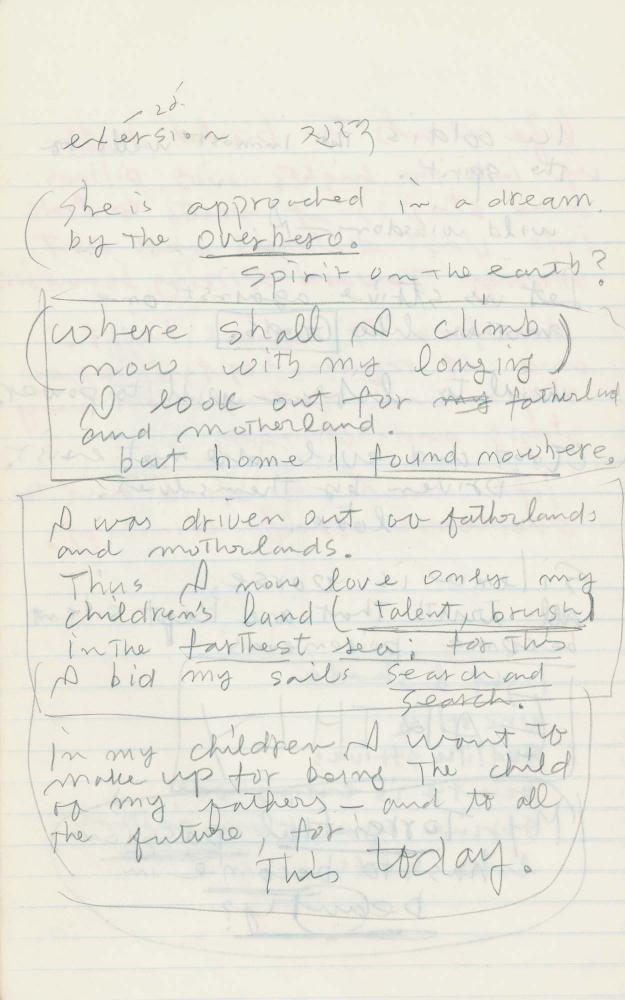 2d.
extersion
(She is approached in a dream
by the Overhero.
Spirit on the earth?
(Where shall I climb)
now with my longing
I look out for my fatherland
and motherland.
but home I found nowhere.
I was driven out oo fatherlands
and motherlands.
Thus I now love only my
children's land (talent, brush)
in the farthest sea; for this
I bid my sails search and
search.
In my children I want to
make up for being the child
of my fathers — and to all
the future, for
This today.